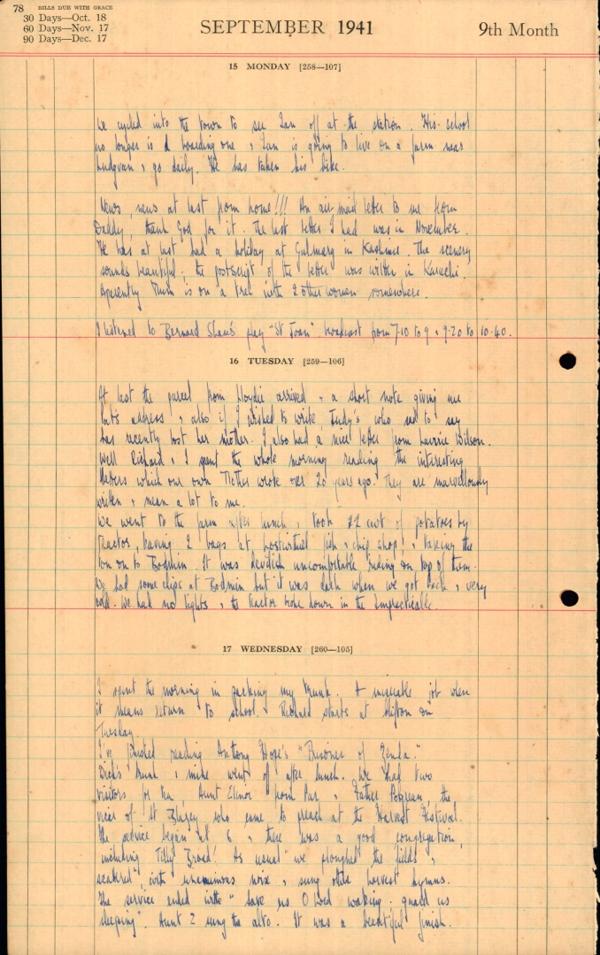 78 BILLS DUE WITH GRACE
30 Days—Oct. 18
60 Days—Nov. 17
90 Days—Dec. 17
SEPTEMBER 1941
9th Month
15 MONDAY [258—107]
We cycled into the town to see Ian off at the station. His school
no longer is a boarding one & Ian is going to live on a farm near
Ludgvan & go daily. He has taken his bike.
News, news at last from home!!! An air mail letter to me from
Daddy, thank God for it. The last letter I had was in November.
He has at last had a holiday at Gulmarg in Kashmir. The scenery
sounds beautiful; the postscript of the letter was written in Karachi.
Aparently Mum is on a trek with 2 other women somewhere.
I listened to Bernard Shaw's play "St Joan" broadcast from 7.10 to 9 & 9.20 to 10.40.
16 TUESDAY [259—106]
At last the parcel from arrived & a short note giving me
address & also if I wished to write Judy's who sad to say
has recently lost her mother. I also had a nice letter from Laurie Wilson.
Well Richard & I spent the whole morning reading the interesting
letters which our own Mother wrote over 20 years ago. They are marvellously
written & mean a lot to me.
We went to the farm after lunch & took 22 cwt of potatoes by
tractor, leaving 2 bags at fish & chip shop! & taking the
ton on to Bodmin. It was devilish uncomfortable riding on top of them.
We had some chips at Bodmin but it was dark when we got back & very
cold. We had no lights & the tractor broke down in the
17 WEDNESDAY [260—105]
I spent the morning in packing my trunk. A miserable job when
it means return to school. Richard starts at Clifton on
Tuesday.
I've finished reading Anthony Hope's "Prisoner of Zenda."
Dick's trunk & mine went off after lunch. We had two
visitors for tea, Aunt Elinor from Par & Father the
vicar of St Blazey who came to preach at the Harvest Festival.
The service began at 6 & there was a good congregation,
including Tilly Broad! As usual "we ploughed the fields &
scattered" with noise & sung other harvest hymns.
The service ended with "Save us O Lord waking, guard us
sleeping". Aunt 2 sung the alto. It was a beautiful finish.